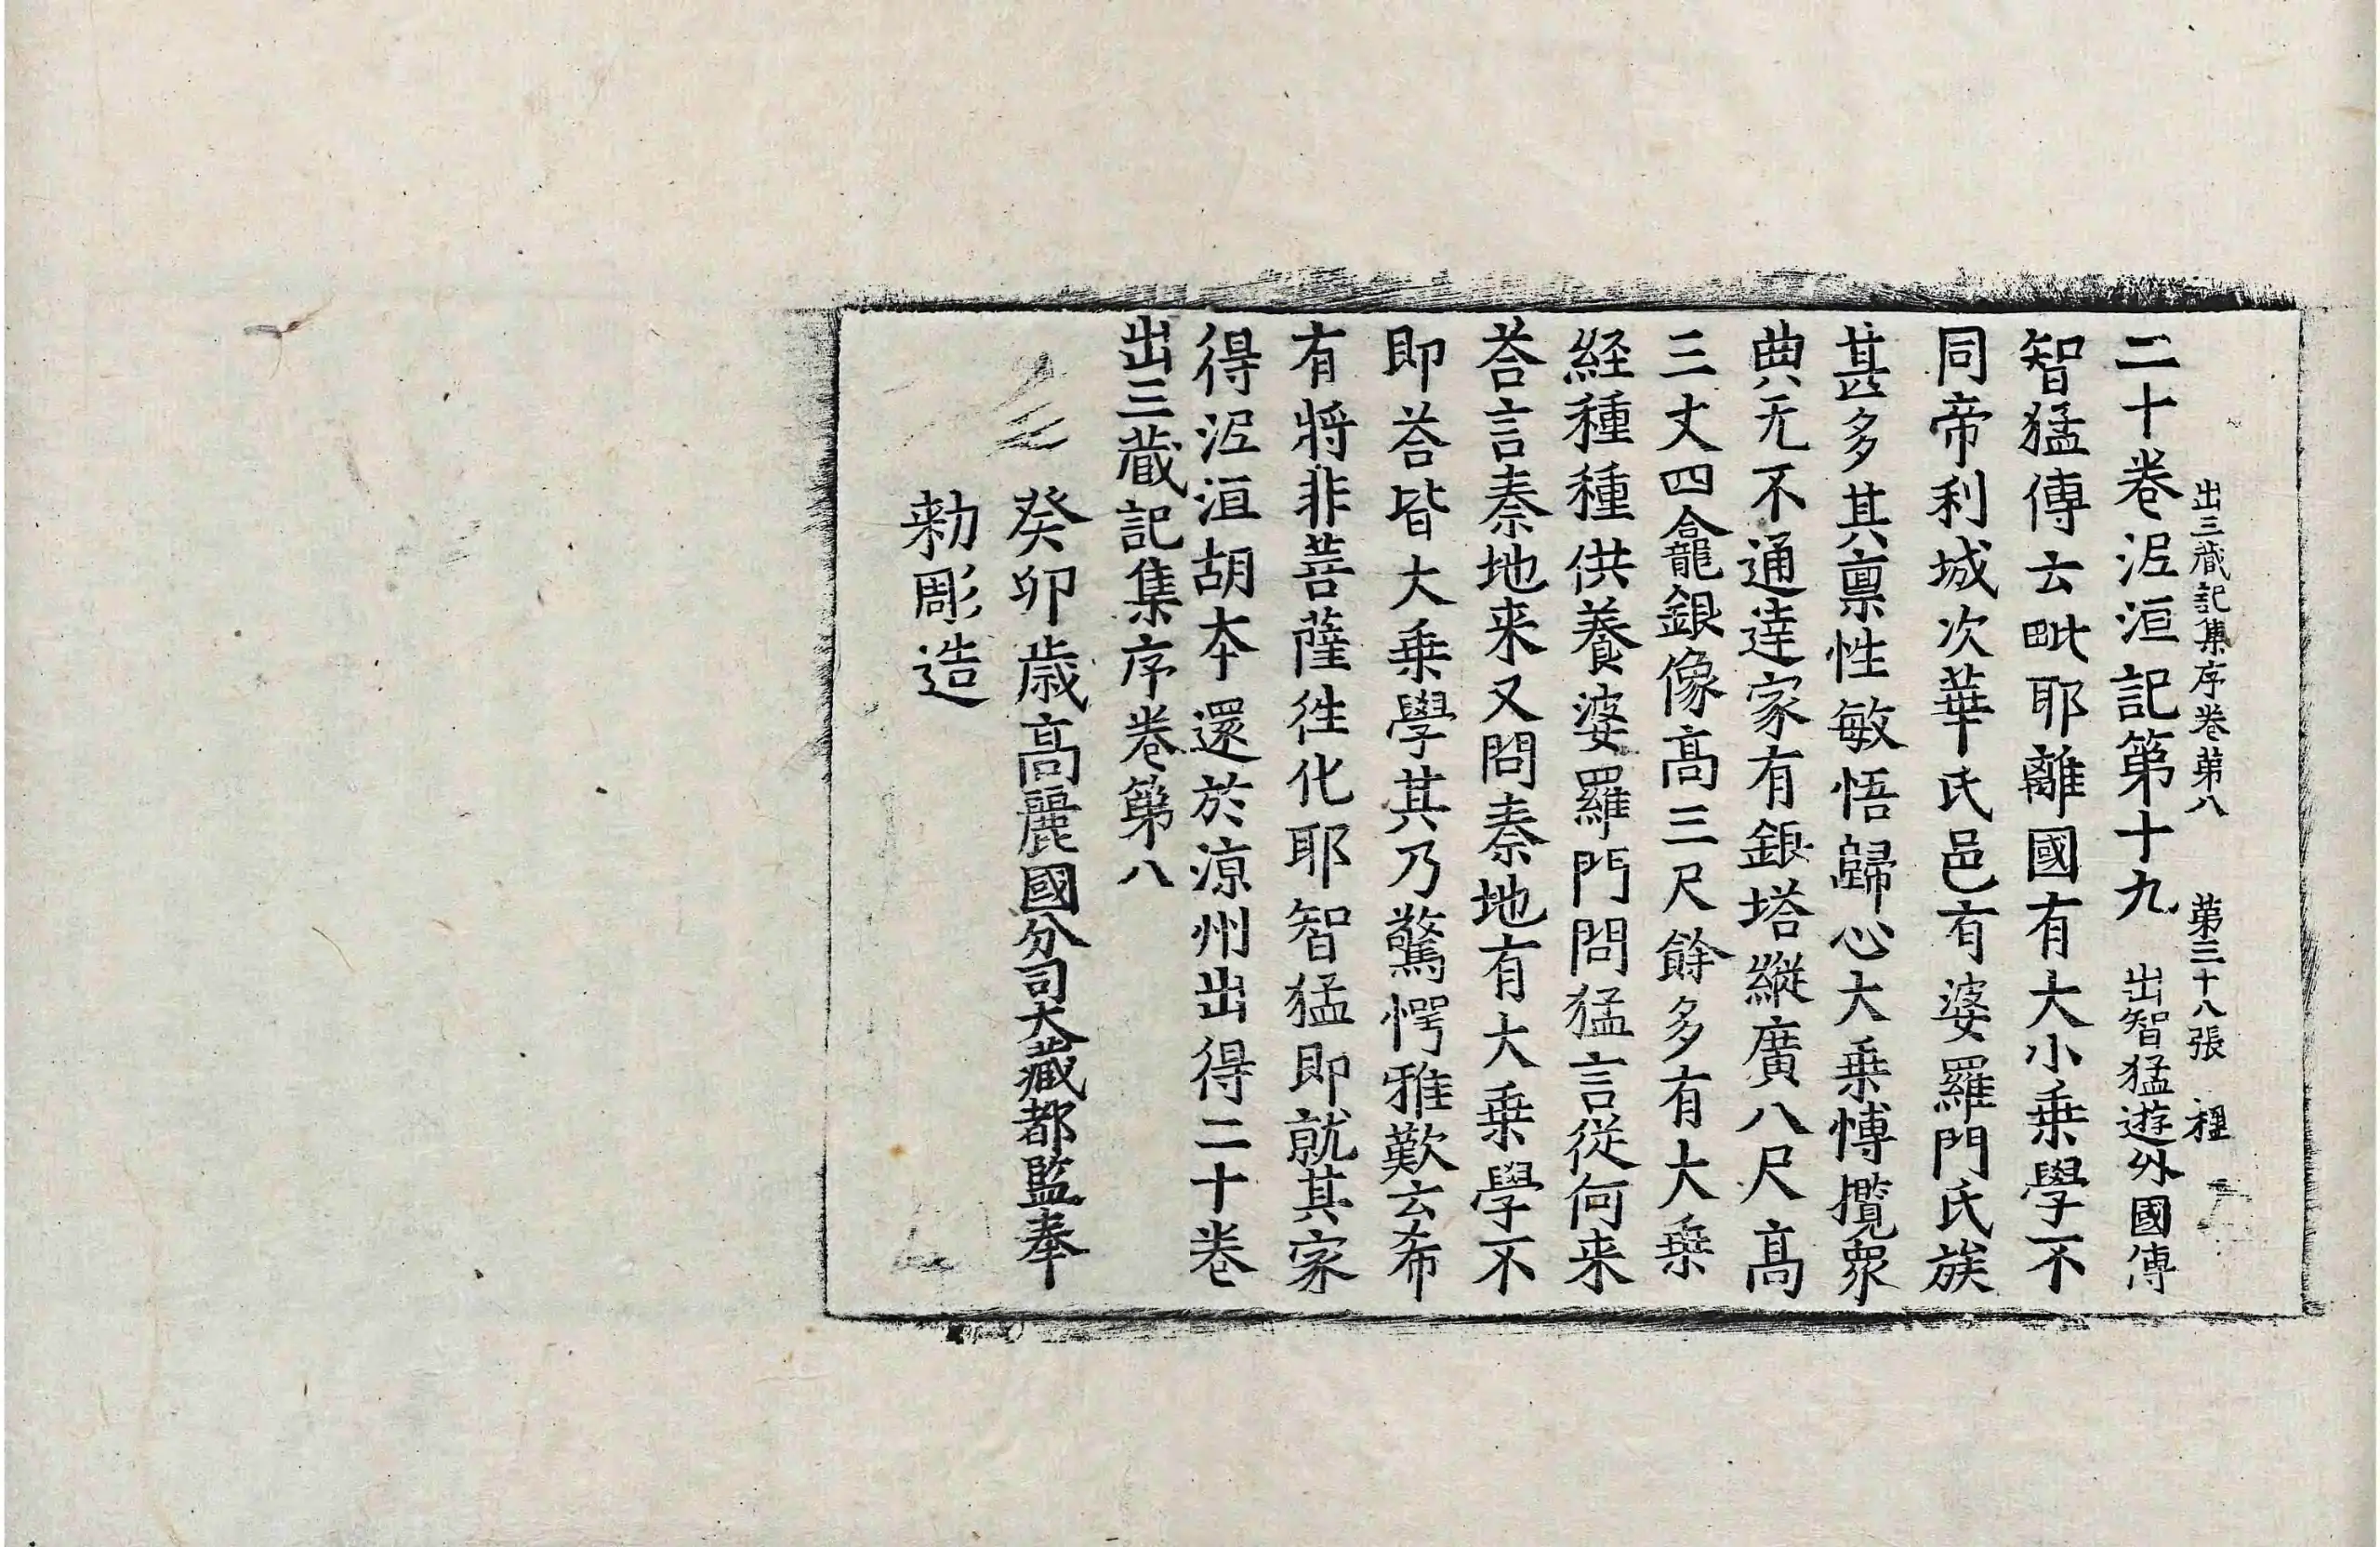 出三藏記集序卷第八 第三十八張 種
二十卷泥洹記第十九 出智猛遊外國傳
智猛傳云毗耶離國有大小乗學不
同帝利城次華氏邑有婆羅門氏族
甚多其稟性敏悟歸心大乗愽攬衆
典无不通達家有銀塔縱廣八尺髙
三丈四龕銀像髙三尺餘多有大乗
経種種供養婆羅門問猛言従何来
荅言秦地来又問秦地有大乗學不
即荅皆大乗學其乃驚愕雅歎云希
有將非菩薩徃化耶智猛即就其家
得泥洹胡夲還於涼州出得二十卷
出三藏記集序卷第八
癸卯歳髙麗國分司大藏都監奉
勑彫造